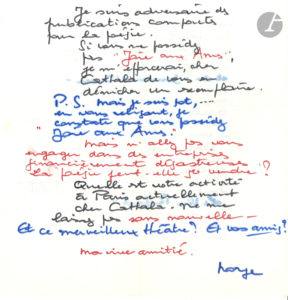 Je suis adversaire de
publications comparées
pour la poésie.
Si vous ne possédez
pas "Joie aux Âmes",
je m'efforcerai, cher
Cattala de vous en
dénicher un exemplaire.
P.S. Mais je suis sot, ...
en vous relisant, je
constate que vous possédez
"Joie aux Âmes".
Mais n'allez pas vous
engager dans des entreprises
financièrement désastreuses
La poésie peut-elle se vendre?
Quelle est votre activité
à Paris actuellement
cher Cattala. Ne me
laissez pas sans nouvelle —
Et ce merveilleux théâtre? Et vos amis?
Ma vive amitié.
Norge